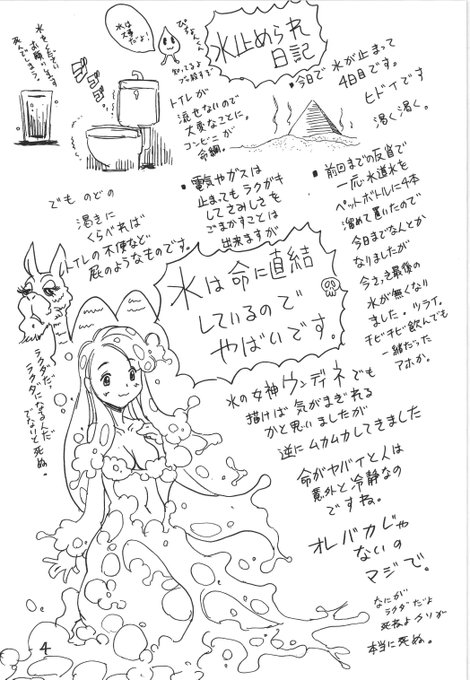 水止められ
日記
水は
大事だよ!
ぴちょんくん
知ってるよ
ブっ殺すぞ
水をください
お願いします
死んでしまう
・今日で水が止まって
4日目です。
ヒドイです
渇く渇く。
トイレが
流せないので
大変なことに
コンビニが
命綱。
・前回までの反省で
一応水道水を
ペットボトルに4本
溜めて置いたので
今日までなんとか
なりましたが
今さっき最後の
水が無くなり
ました。ツライ。
チビチビ飲んでも
一緒だった
アホか。
・電気やガスは
止まってもラクガキ
してさみしさを
ごまかすことは
出来ますが
でも のどの
渇きに
くらべれば
トイレの不便など
屁のようなものです。
水は命に直結
しているので
やばいです。
ラクダだ
ラクダになるんだ
でないと死ぬ。
水の女神ウンディネでも
描けば気がまぎれる
かと思いましたが
逆にムカムカしてきました
命がヤバイと人は
意外と冷静なの
ですね。
オレバカじゃ
ないの
マジで。
なにが
ラクダだよ
死ねよクソが
本当に死ぬ。
4